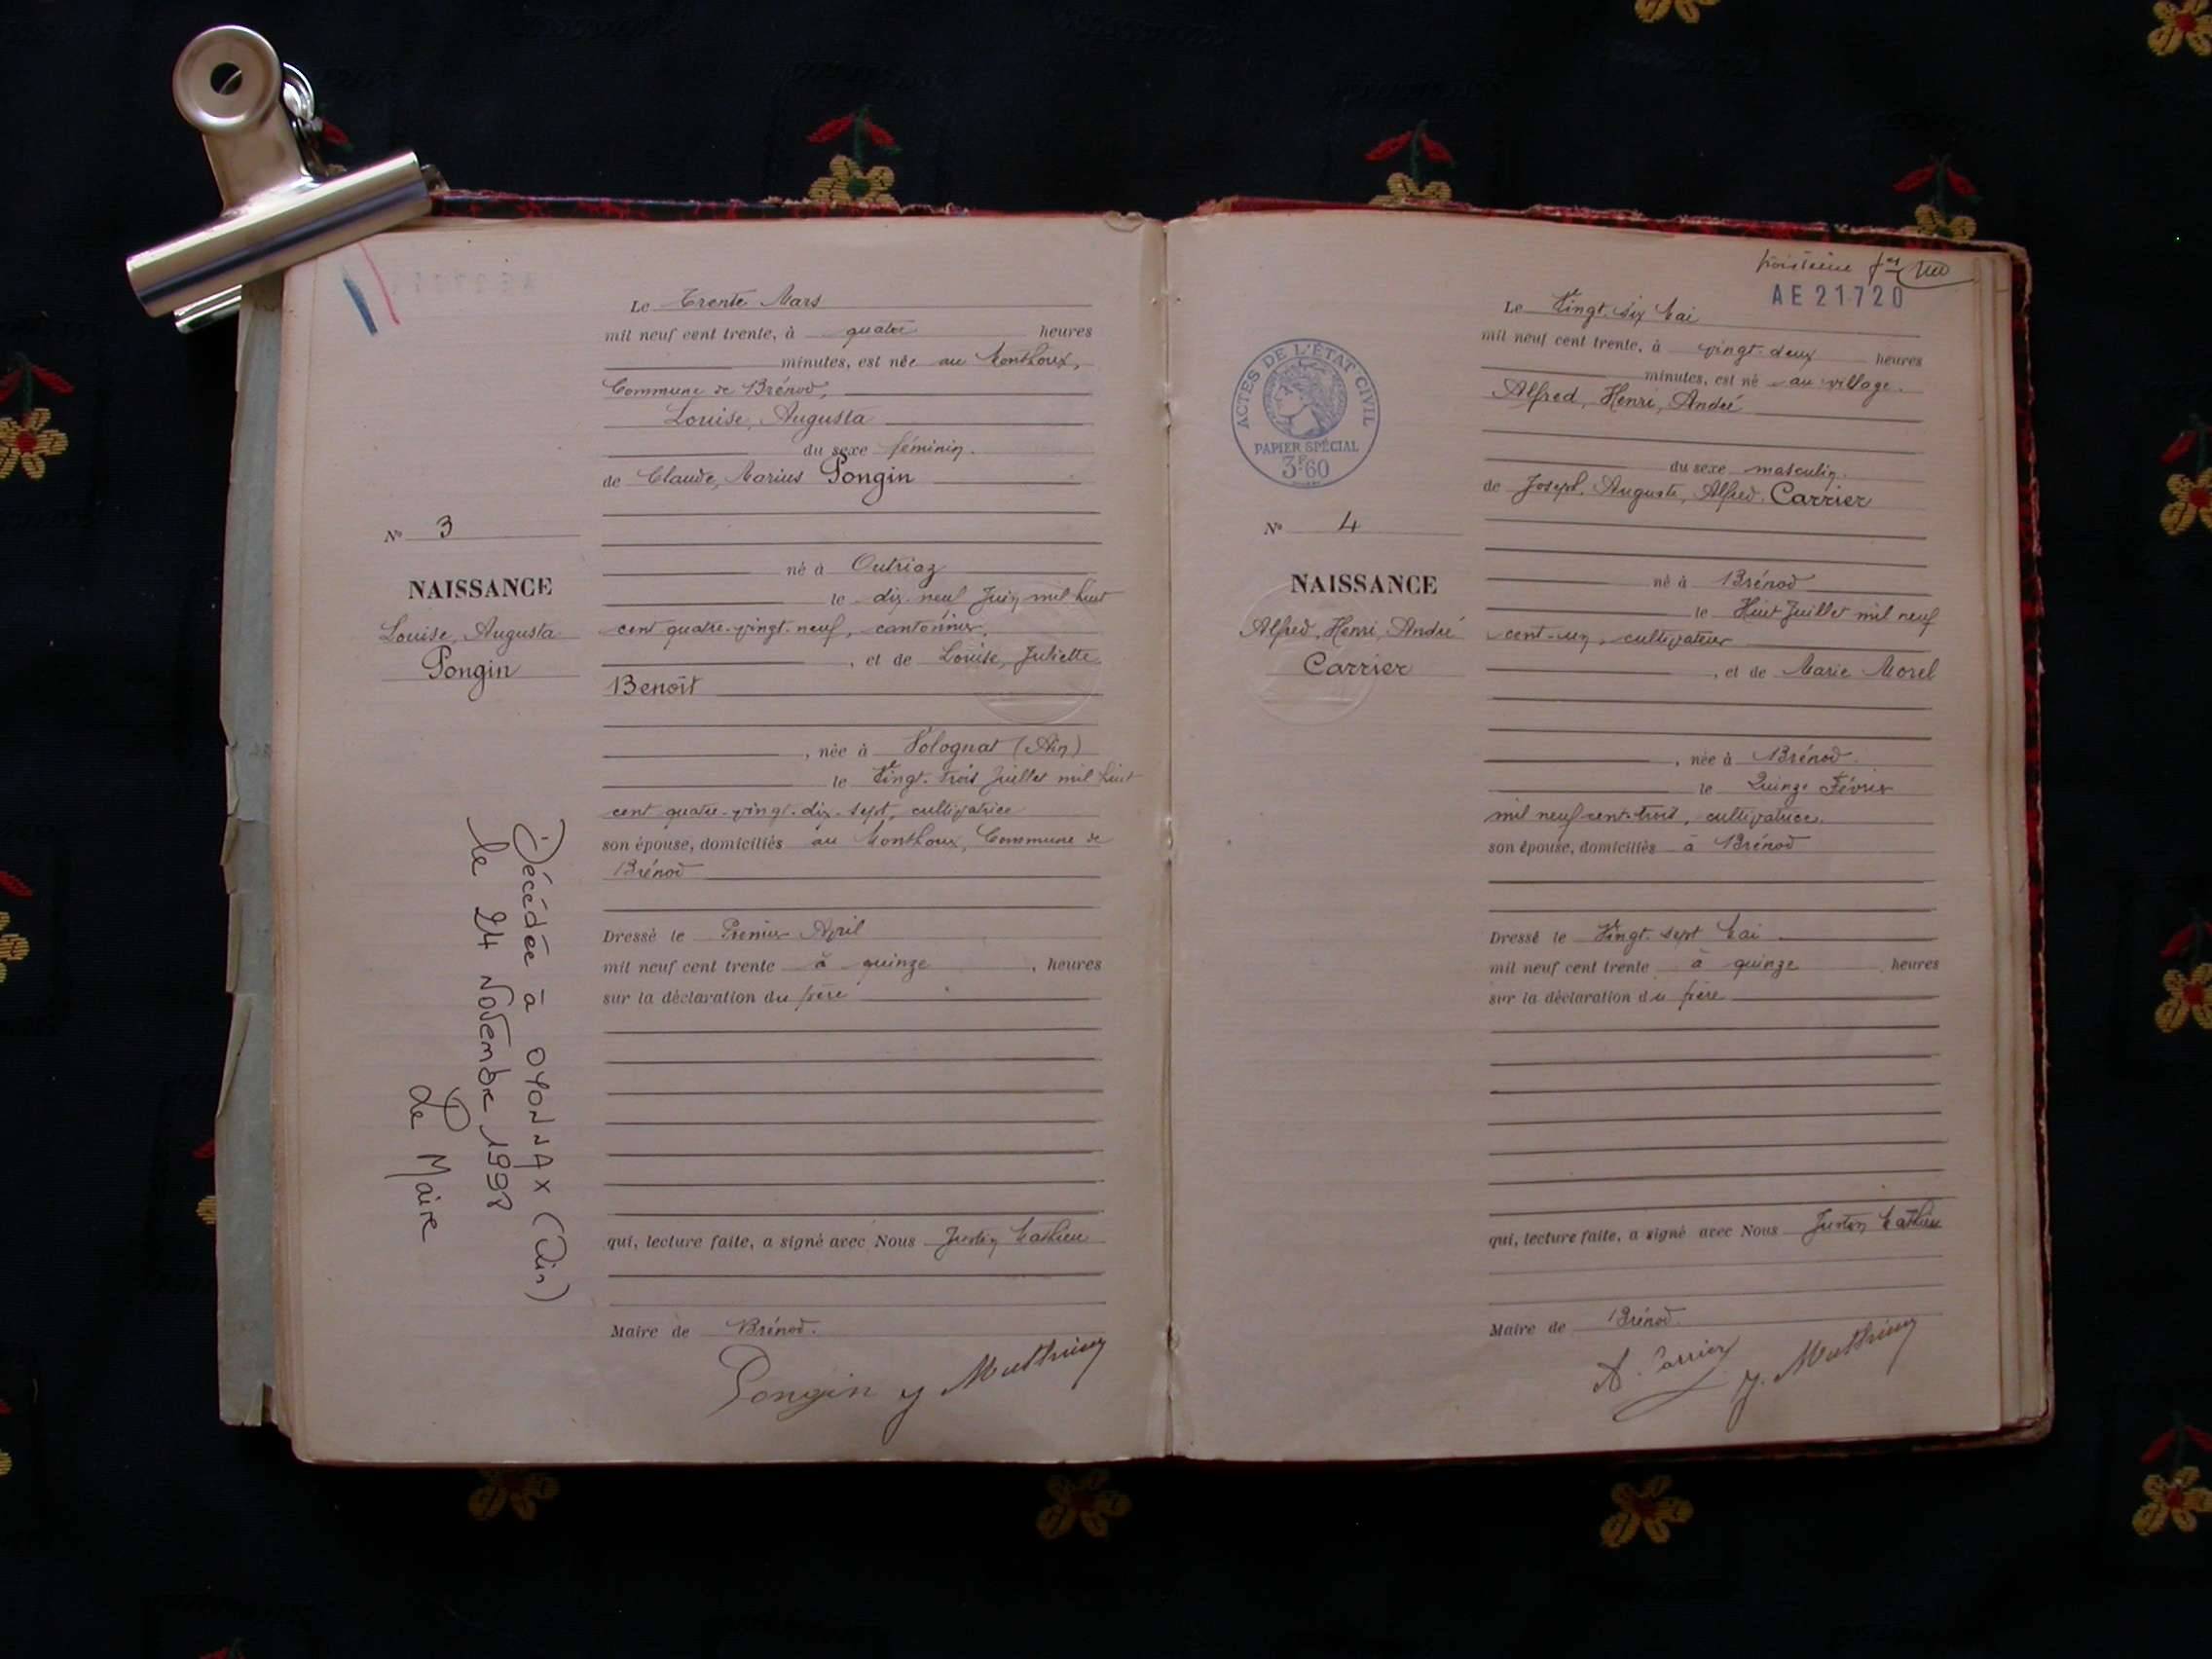 Le Trente Mars
mil neuf cent trente, à quatre heures
minutes, est née au Monthoux,
Commune de Brénod,
Louise, Augusta
du sexe féminin.
de Claude, Marius Pongin
N° 3
né à Outriaz
NAISSANCE
le dix-neuf Juin mil huit
Louise, Augusta
cent quatre-vingt-neuf, cantonnier,
Pongin
, et de Louise, Juliette
Benoît
, née à Volognat (Ain)
le Vingt-trois Juillet mil huit
cent quatre-vingt-dix-sept, cultivatrice
son épouse, domiciliés au Monthoux, Commune de
Brénod
Dressé le Premier Avril
mil neuf cent trente à quinze, heures
sur la déclaration du père
qui, lecture faite, a signé avec Nous Justin Mathieu
Maire de Brénod.
Pongin J Mathieu
Décédée à OYONNAX (Ain)
le 24 Novembre 1998
Le Maire
troisième
AE 21720
Le Vingt-six Mai
mil neuf cent trente, à vingt-deux heures
minutes, est né au village.
Alfred, Henri, André
du sexe masculin.
de Joseph, Auguste, Alfred Carrier
ACTES DE L'ÉTAT CIVIL
PAPIER SPÉCIAL
3F60
N° 4
né à Brénod
NAISSANCE
le Huit Juillet mil neuf
Alfred, Henri, André
cent-un, cultivateur
Carrier
, et de Marie Morel
, née à Brénod.
le Quinze Février
mil neuf cent-trois, cultivatrice.
son épouse, domiciliés à Brénod
Dressé le Vingt-sept Mai
mil neuf cent trente à quinze heures
sur la déclaration du père
qui, lecture faite, a signé avec Nous Justin Mathieu
Maire de Brénod.
A. Carrier J. Mathieu